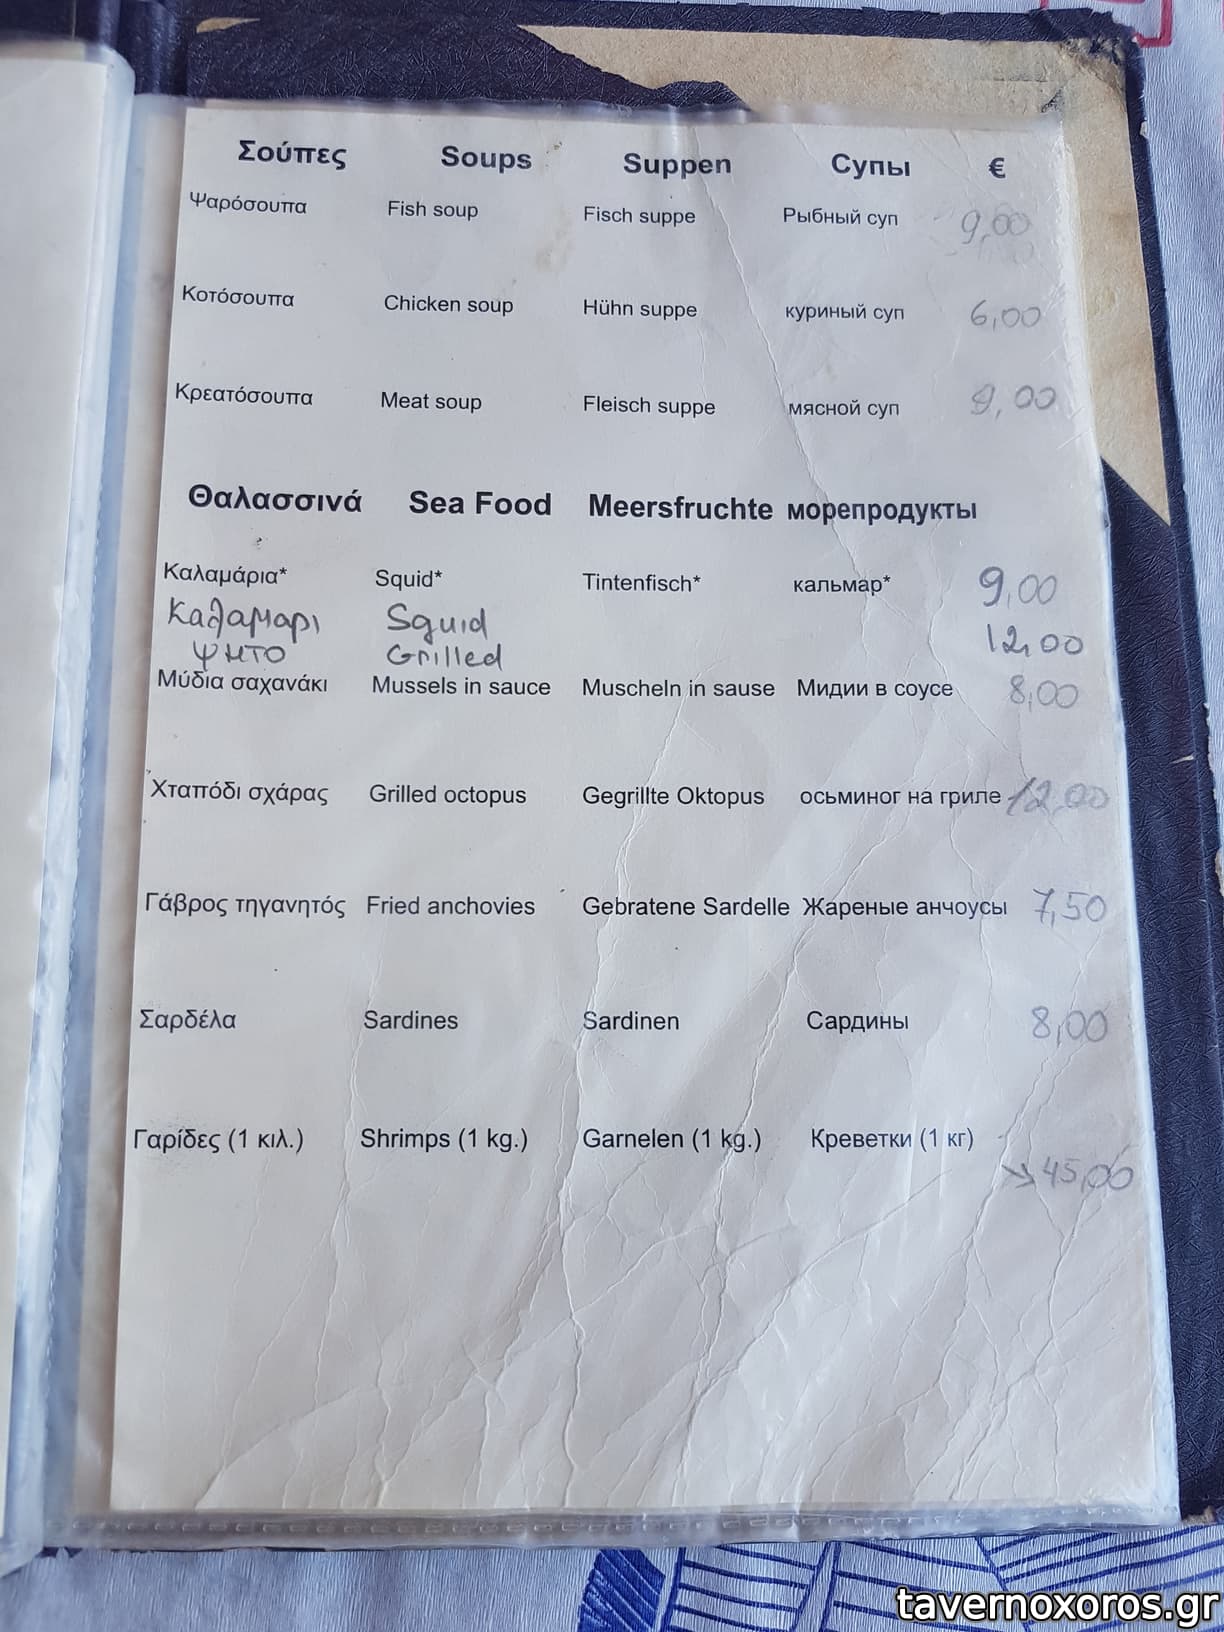 Σούπες Soups Suppen Супы €
Ψαρόσουπα Fish soup Fisch suppe Рыбный суп 9,00
Κοτόσουπα Chicken soup Hühn suppe куриный суп 6,00
Κρεατόσουπα Meat soup Fleisch suppe мясной суп 9,00
Θαλασσινά Sea Food Meersfruchte морепродукты
Καλαμάρια* Squid* Tintenfisch* кальмар* 9,00
Καλαμαρι Squid 12,00
ψητο Grilled
Μύδια σαχανάκι Mussels in sauce Muscheln in sause Мидии в соусе 8,00
Χταπόδι σχάρας Grilled octopus Gegrillte Oktopus осьминог на гриле 12,00
Γάβρος τηγανητός Fried anchovies Gebratene Sardelle Жареные анчоусы 7,50
Σαρδέλα Sardines Sardinen Сардины 8,00
Γαρίδες (1 κιλ.) Shrimps (1 kg.) Garnelen (1 kg.) Креветки (1 кг)
45,00
tavernoxoros.gr